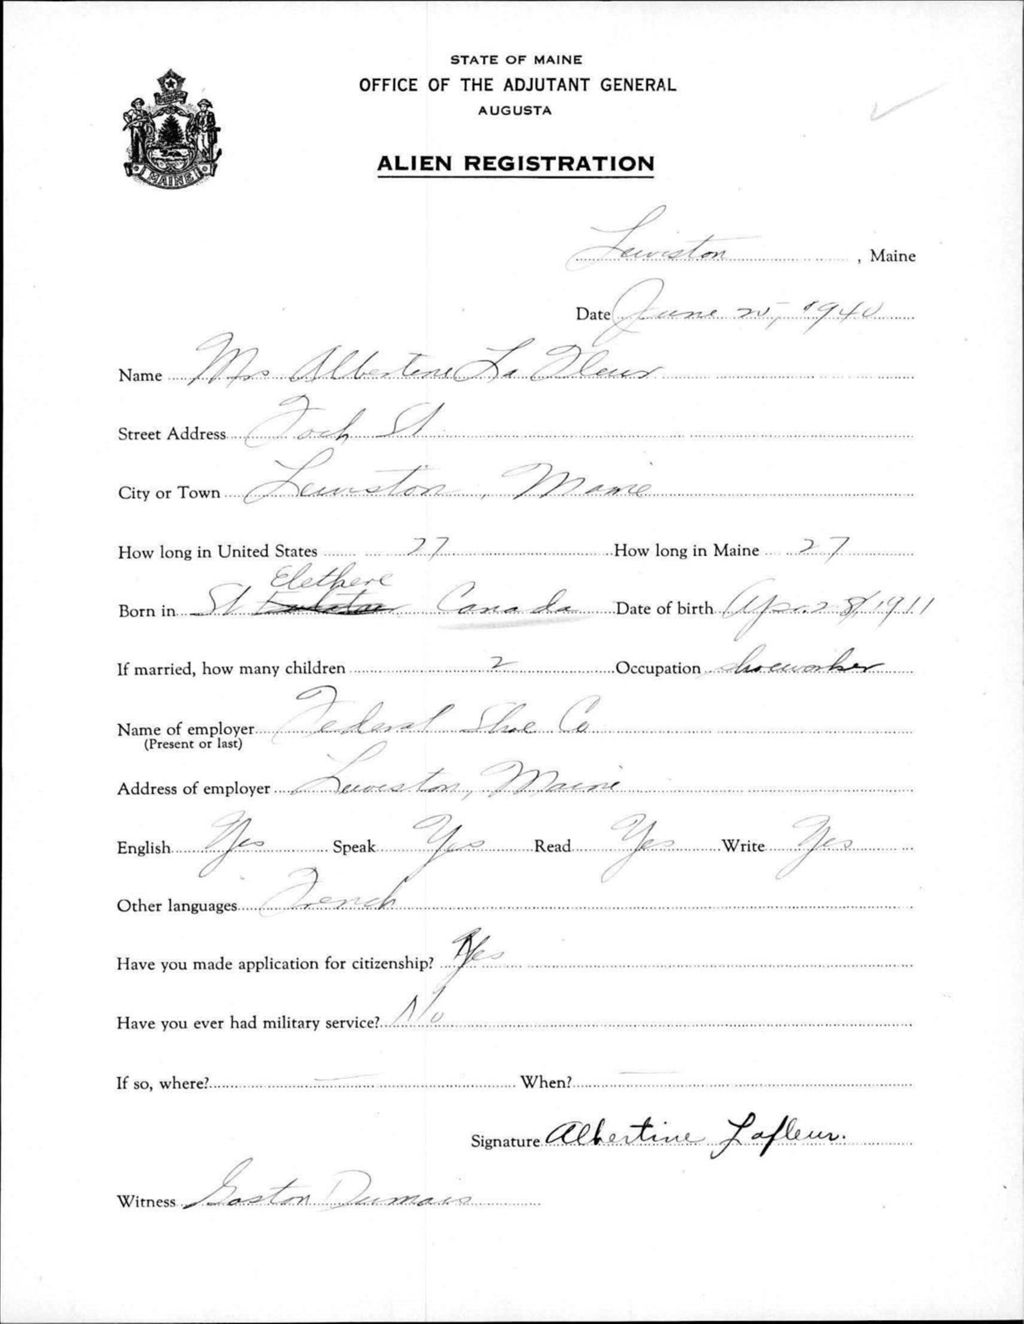 STATE OF MAINE
OFFICE OF THE ADJUTANT GENERAL
AUGUSTA
MAINE
ALIEN REGISTRATION
Lewiston, Maine
Date June 25, 1940
Name Mrs Albertene La Fleur
Street Address Foch St
City or Town Lewiston, Maine
How long in United States 27 How long in Maine 27
Elethere
Born in St Canada Date of birth Apr. 28, 1911
If married, how many children 2 Occupation shoeworker
Name of employer Federal Shoe Co
(Present or last)
Address of employer Lewiston, Maine
English Yes Speak Yes Read Yes Write Yes
Other languages French
Have you made application for citizenship? Yes
Have you ever had military service? No
If so, where? — When? —
Signature Albertine Lafleur.
Witness Gaston Dumais